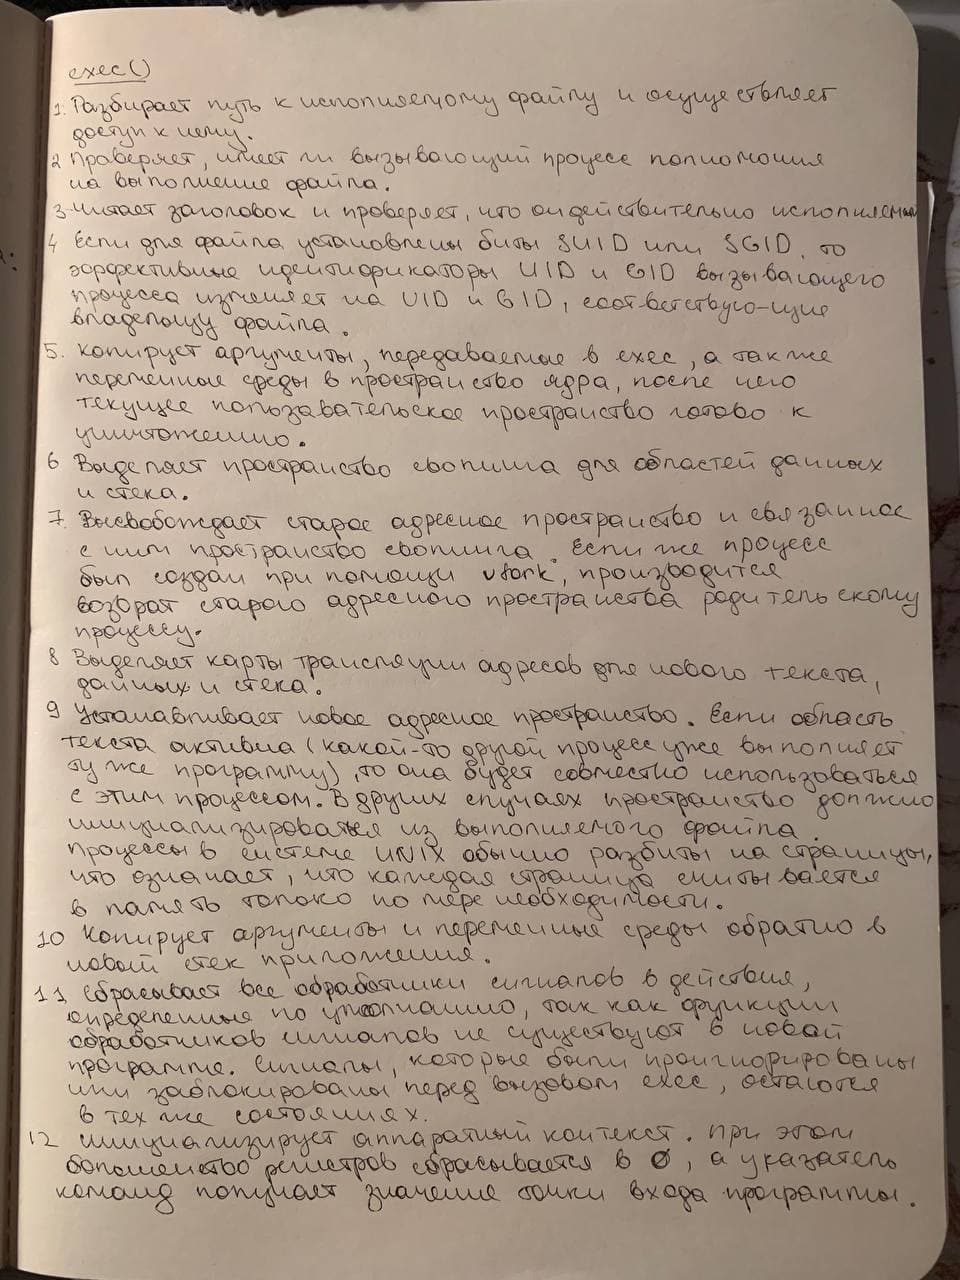 exec()
1. Разбирает путь к исполняемому файлу и осуществляет
доступ к нему.
2 Проверяет, имеет ли вызывающий процесс полномочия
на выполнение файла.
3. Читает заголовок и проверяет, что он действительно исполняемый
4 Если для файла установлены биты SUID или SGID, то
эффективные идентификаторы UID и GID вызывающего
процесса изменяет на UID и GID, соответствую-щие
владельцу файла.
5. Копирует аргументы, передаваемые в exec, а также
переменные среды в пространство ядра, после чего
текущее пользавательское пространство готово к
уничтожению.
6 Выделяет пространство свопинга для областей данных
и стека.
7. Высвобождает старое адресное пространство и связанное
с ним пространство свопинга. Если же процесс
был создан при помощи vfork, производится
возврат старого адресного пространства родительскому
процессу.
8 Выделяет карты трансляции адресов для нового текста,
данных и стека.
9 Устанавливает новое адресное пространство. Если область
текста активна (какой-то другой процесс уже выполняет
ту же программу), то она будет совместно использоваться
с этим процессом. В других случаях пространство должно
инициализироваться из выполняемого файла.
Процессы в системе UNIX обычно разбиты на страницы,
что означает, что каждая страница считывается
в память только по мере необходимости.
10 Копирует аргументы и переменные среды обратно в
новый стек приложения.
11 Сбрасывает все обработчики сигналов в действия,
определенные по умолчанию, так как функции
обработчиков сигналов не существуют в новой
программе. Сигналы, которые были проигнорированы
или заблокированы перед вызовом exec, остаются
в тех же состояниях.
12 Инициализирует аппаратный контекст. При этом
большинство регистров сбрасывается в 0, а указатель
команд получает значение точки входа программы.